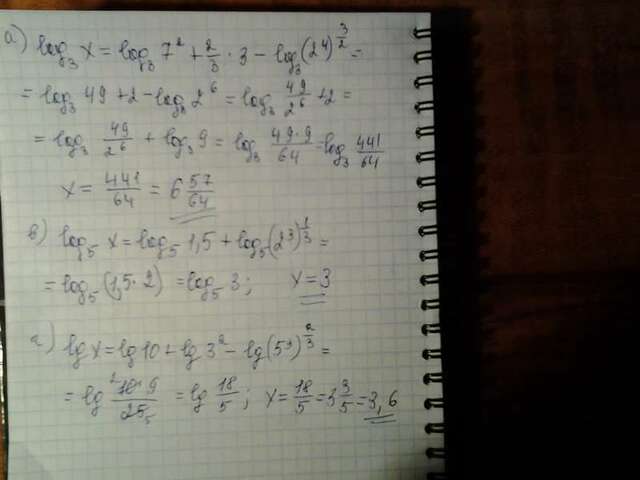 а) log₃ x = log₃ 7² + 2/3 · 3 − log₃ (2⁴)^(3/2) =
= log₃ 49 + 2 − log₃ 2⁶ = log₃ 49/2⁶ + 2 =
= log₃ 49/2⁶ + log₃ 9 = log₃ 49·9/64 = log₃ 441/64
x = 441/64 = 6 57/64
в) log₅ x = log₅ 1,5 + log₅ (2³)^(1/3) =
= log₅ (1,5 · 2) = log₅ 3; x = 3
г) lg x = lg 10 + lg 3² − lg (5³)^(2/3) =
= lg 10·9/25 = lg 18/5; x = 18/5 = 3 3/5 = 3,6